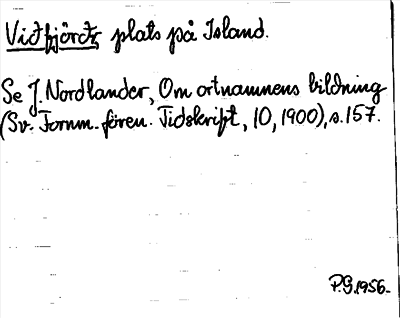 Viðfjörðr plats på Island.
Se J. Nordlander, Om ortnamnens bildning
(Sv. Fornm. fören. Tidskrift, 10, 1900), s. 157.
P.G. 1956.